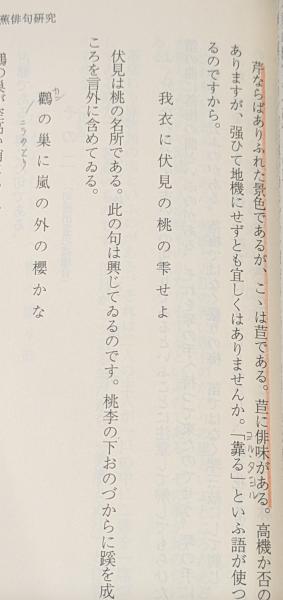 芹ならばありふれた景色であるが、こゝは苣である。苣に俳味がある。高機か否の
ありますが、强ひて地機にせずとも宜しくはありませんか。「靠る」といふ語が使つ
るのですから。
我衣に伏見の桃の雫せよ
伏見は桃の名所である。此の句は興じてゐるのです。桃李の下おのづからに蹊を成
ころを言外に含めてゐる。
鸛の巣に嵐の外の櫻かな
カン
こうのとり
蕉俳句研究